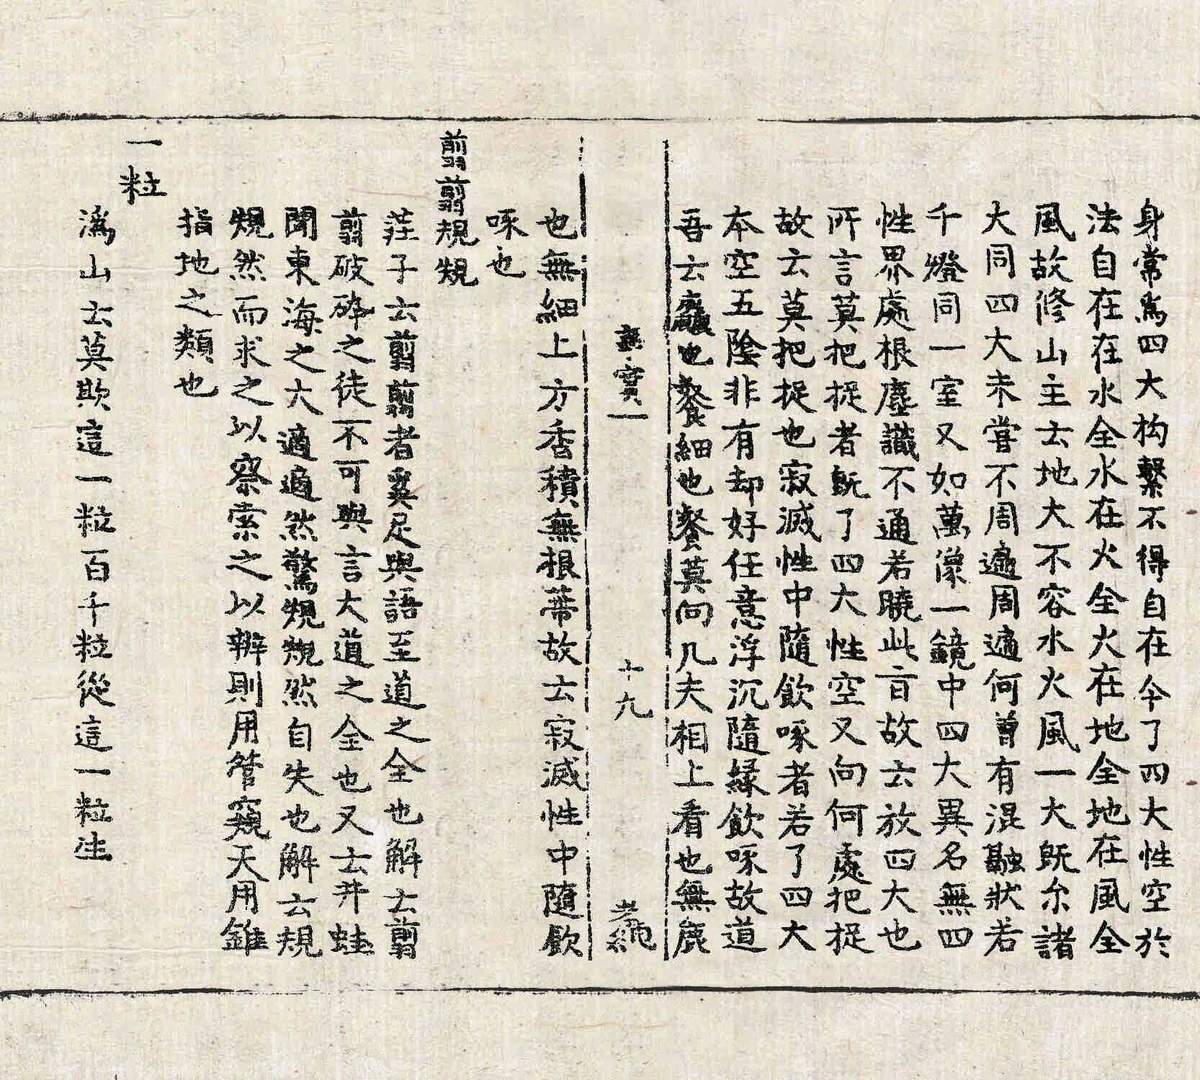 身常爲四大构繫不得自在今了四大性空於
法自在在水全水在火全火在地全地在風全
風故修山主云地大不容水火風一大既尒諸
大同四大未嘗不周遍周遍何曾有混融狀若
千燈同一室又如萬像一鏡中四大異名無四
性界處根塵識不通若曉此言故云放四大也
所言莫把捉者旣了四大性空又向何處把捉
故云莫把捉也寂滅性中隨飮啄者若了四大
本空五陰非有却好任意浮沉隨緣飮啄故道
吾云麤也飡細也飡莫向凡夫相上看也無麁
實一
十九
也無細上方香積無根蔕故云寂滅性中隨飮
啄也
翦翦規規
莊子云翦翦者奚足與語至道之全也解云翦
翦破碎之徒不可與言大道之全也又云井蛙
聞東海之大適適然驚規規然自失也解云規
規然而求之以察索之以辨則用管窺天用錐
指地之類也
一粒
潙山云莫欺這一粒百千粒從這一粒生